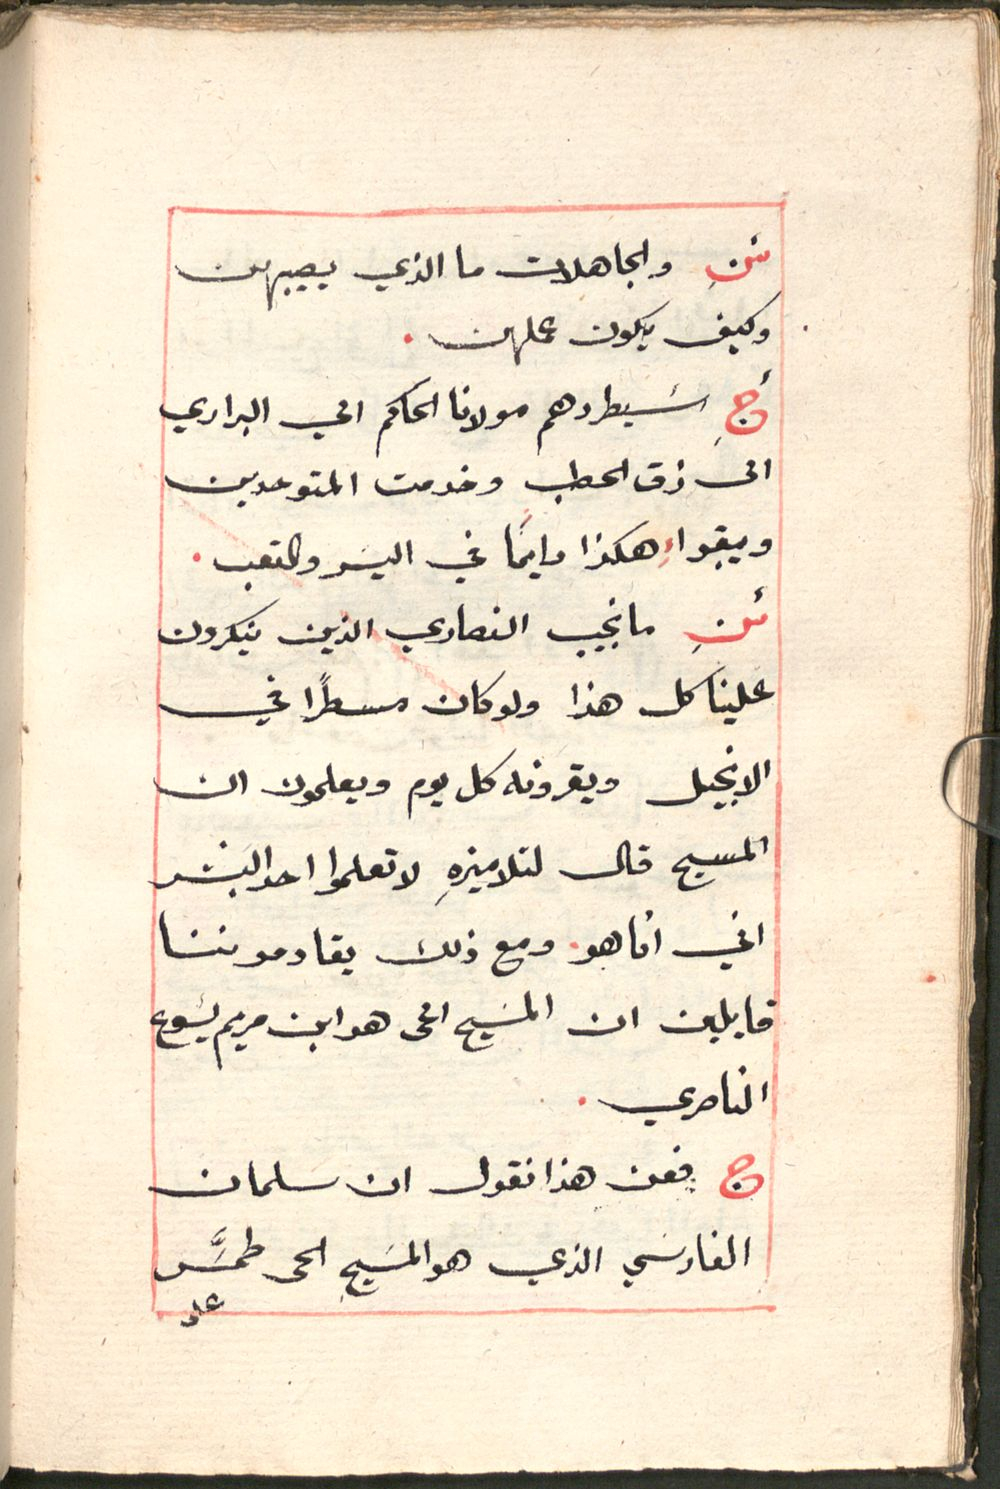 س والجاهلات ما الذي يصيبهن
وكيف يكون عملهن .
ج سيطردهم مولانا الحاكم الي البراري
الى زق الحطب وخدمت المتوحدين
ويبقوا هكذا دايمًا في اليسر والتعب .
س ما نجيب النصاري الذين ينكرون
علينا كل هذا ولو كان مسطرًا في
الانجيل ويقرونه كل يوم ويعلمون ان
المسيح قال لتلاميزهِ لا تعلموا احد البشر
اني انا هو . ومع ذلك يقاوموننا
قايلين ان المسيح الحى هو ابن مريم يسوع
الناصري .
ج فعن هذا نقول ان سلمان
الفارسي الذي هو المسيح الحى طمَّس
على